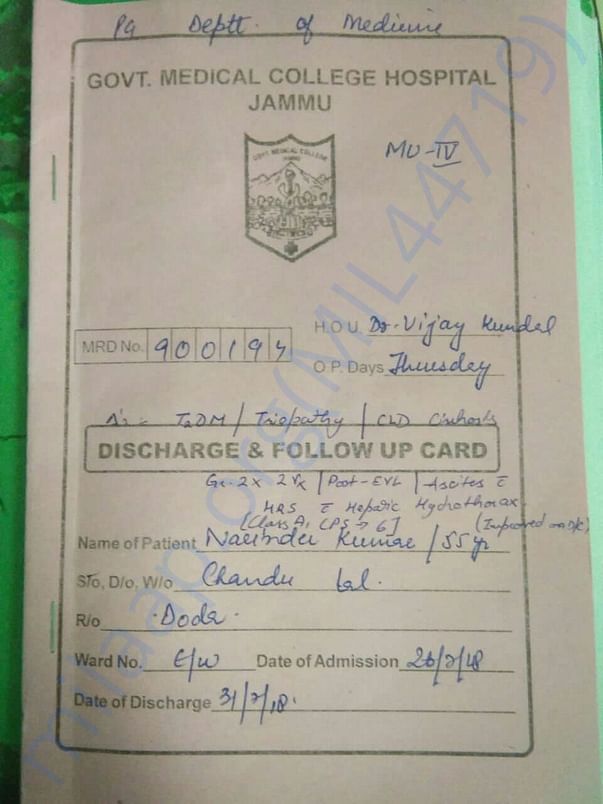 PG Deptt. of Medicine
GOVT. MEDICAL COLLEGE HOSPITAL
JAMMU
GOVT. MEDICAL COLLEGE
MU-IV
H.O.U. Dr. Vijay Kundal
MRD No. 900194
O.P. Days Thursday
T2DM / Triopathy / CLD Cirrhosis
DISCHARGE & FOLLOW UP CARD
Gr. 2 x 2 Vx / Post-EVL / Ascites c̄
HRS c̄ Hepatic Hydrothorax
[Class A, CPS → 6] (Improved on D/C)
Name of Patient Narinder Kumar / 55 yr
S/o, D/o, W/o Chandu Lal.
R/o Doda.
Ward No. E/W Date of Admission 26/7/18
Date of Discharge 31/7/18.
milaap.org(MIL44719)